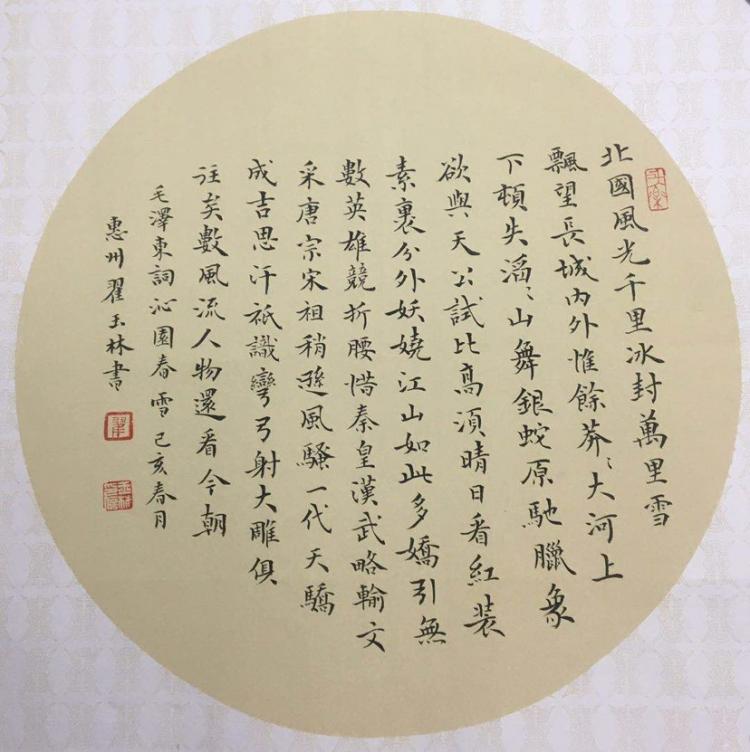 北國風光千里冰封萬里雪
飄望長城内外惟餘莽〻大河上
下頓失滔〻山舞銀蛇原馳臘象
欲與天公試比高須晴日看紅装
素裹分外妖嬈江山如此多嬌引無
數英雄競折腰惜秦皇漢武略輸文
采唐宗宋祖稍遜風騷一代天驕
成吉思汗祇識彎弓射大雕俱
往矣數風流人物還看今朝
毛澤東詞沁園春雪己亥春月
惠州翟玉林書
翟